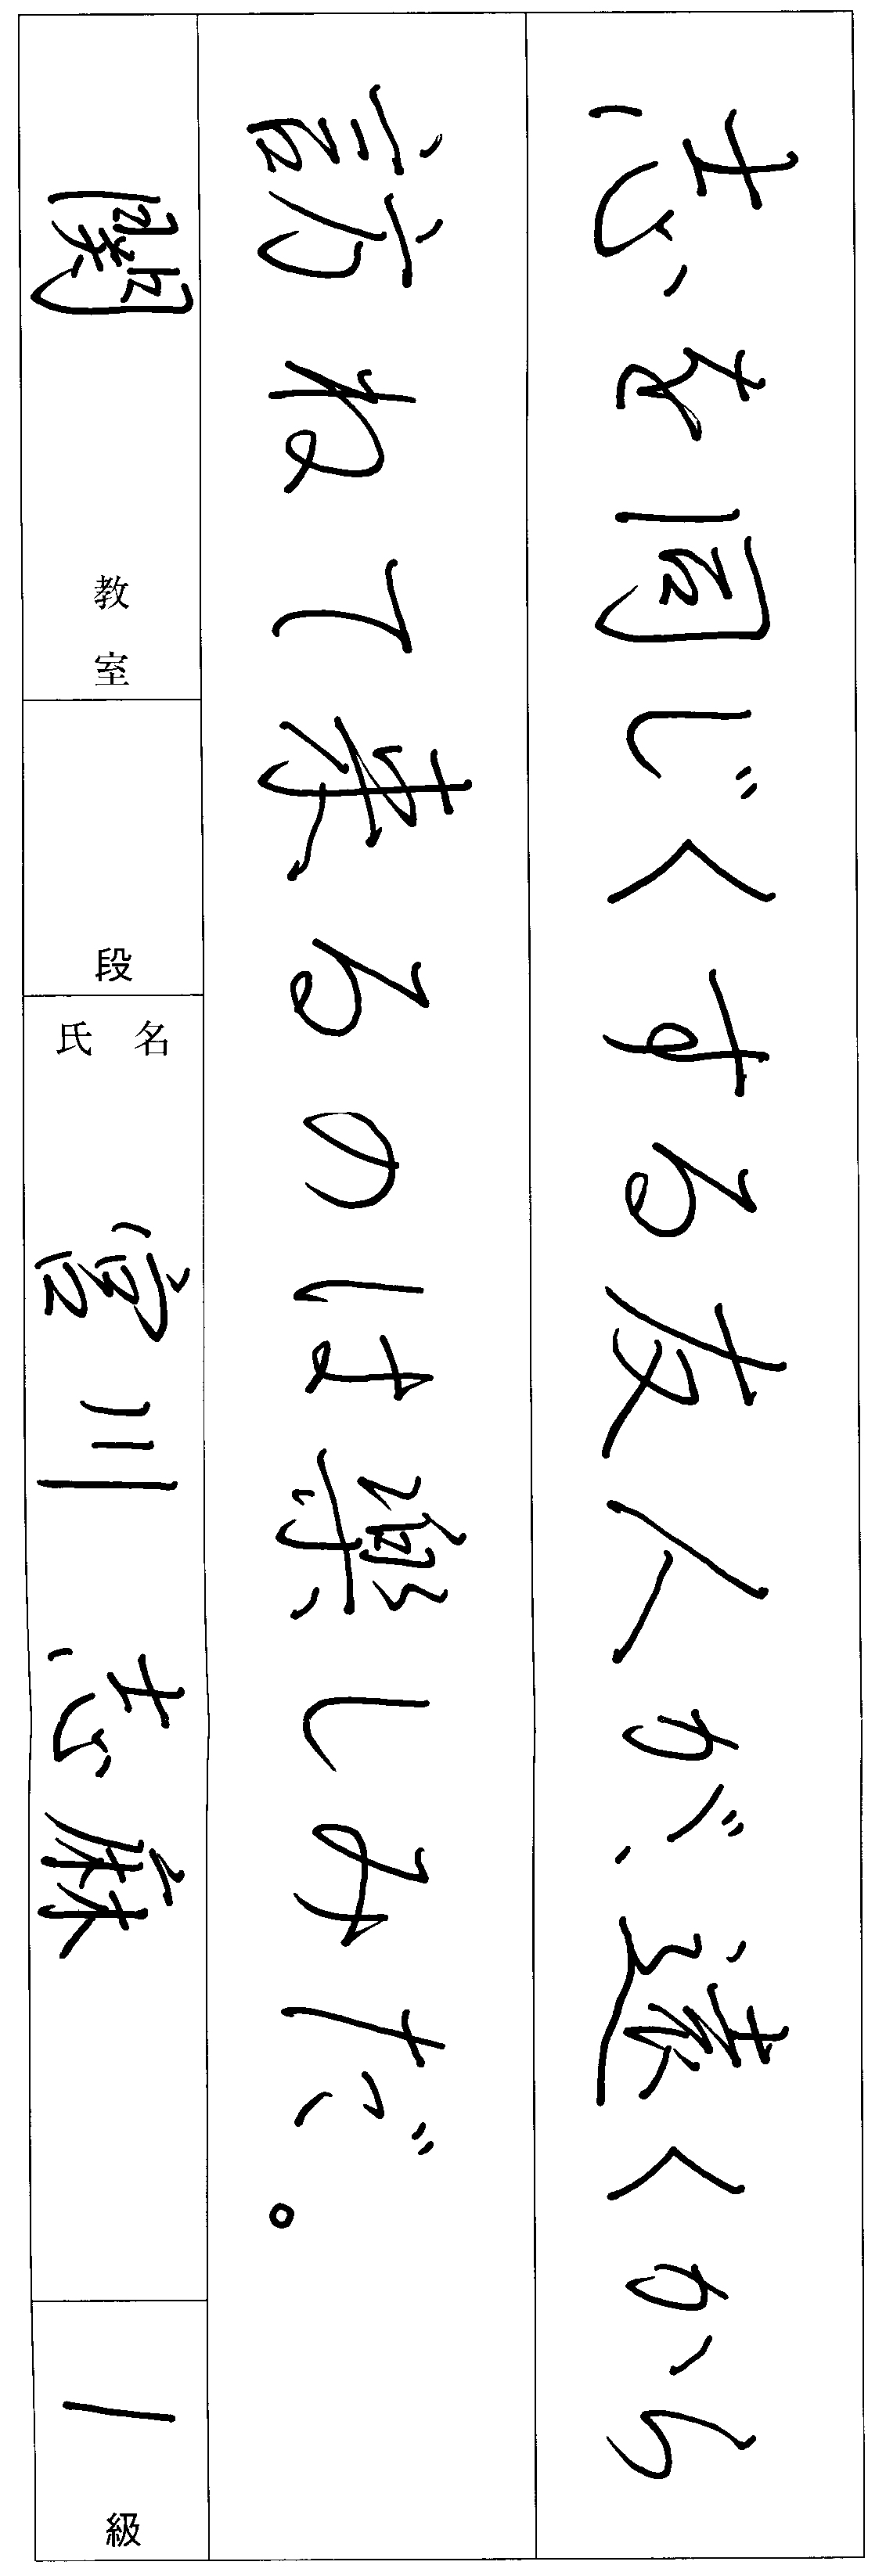 志を同じくする友人が、遠くから
訪ねて来るのは楽しみだ。
関 教室
段
氏名 宮川 志麻
一 級